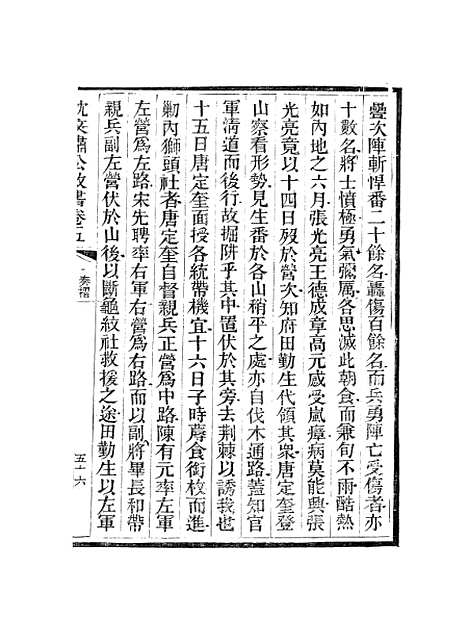 疊次陣斬悍番二十餘名轟傷百餘名而兵勇陣亡受傷者亦
十數名將士憤極勇氣彌厲各思滅此朝食而兼旬不雨酷熱
如內地之六月張光亮王德成章高元感受嵐瘴病莫能興張
光亮竟以十四日歿於營次知府田勤生代領其眾唐定奎登
山察看形勢見生番於各山稍平之處亦自伐木通路蓋知官
軍清道而後行故掘阱乎其中置伏於其旁去荆棘以誘我也
十五日唐定奎面授各統帶機宜十六日子時蓐食銜枚而進
勦內獅頭社者唐定奎自督親兵正營為中路陳有元率左軍
左營為左路宋先聘率右軍右營為右路而以副將畢長和帶
親兵副左營伏於山後以斷龜紋社救援之途田勤生以左軍
沈文肅公政書卷五
奏摺
五十六